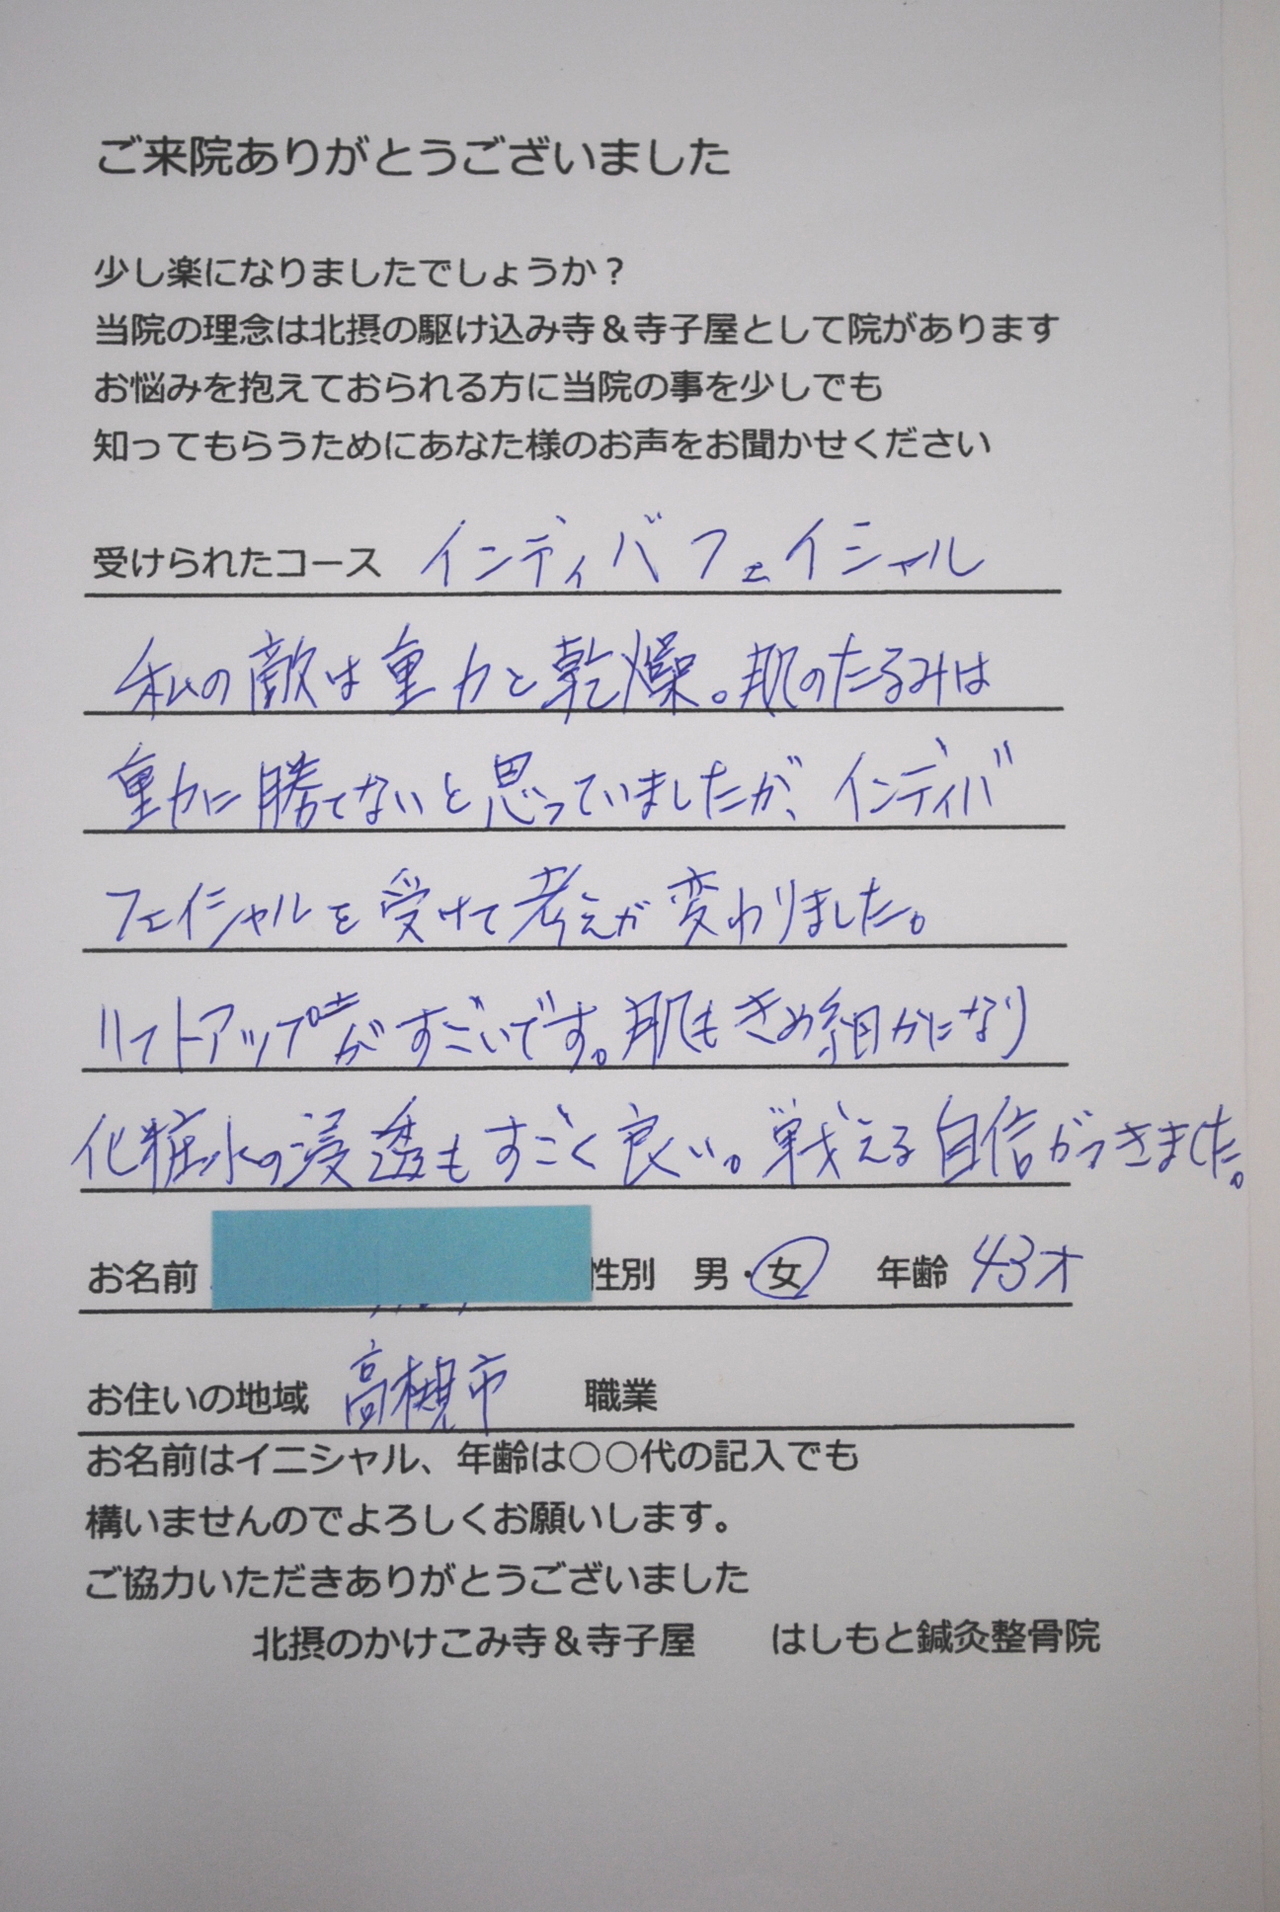 ご来院ありがとうございました
少し楽になりましたでしょうか？
当院の理念は北摂の駆け込み寺＆寺子屋として院があります
お悩みを抱えておられる方に当院の事を少しでも
知ってもらうためにあなた様のお声をお聞かせください
受けられたコース インディバフェイシャル
私の敵は重力と乾燥。肌のたるみは
重力に勝てないと思っていましたが、インディバ
フェイシャルを受けて考えが変わりました。
リフトアップ力がすごいです。肌もきめ細かになり
化粧水の浸透もすごく良い。戦える自信がつきました。
お名前 性別 男・女 年齢 43才
お住いの地域 高槻市 職業
お名前はイニシャル、年齢は○○代の記入でも
構いませんのでよろしくお願いします。
ご協力いただきありがとうございました
北摂のかけこみ寺＆寺子屋 はしもと鍼灸整骨院